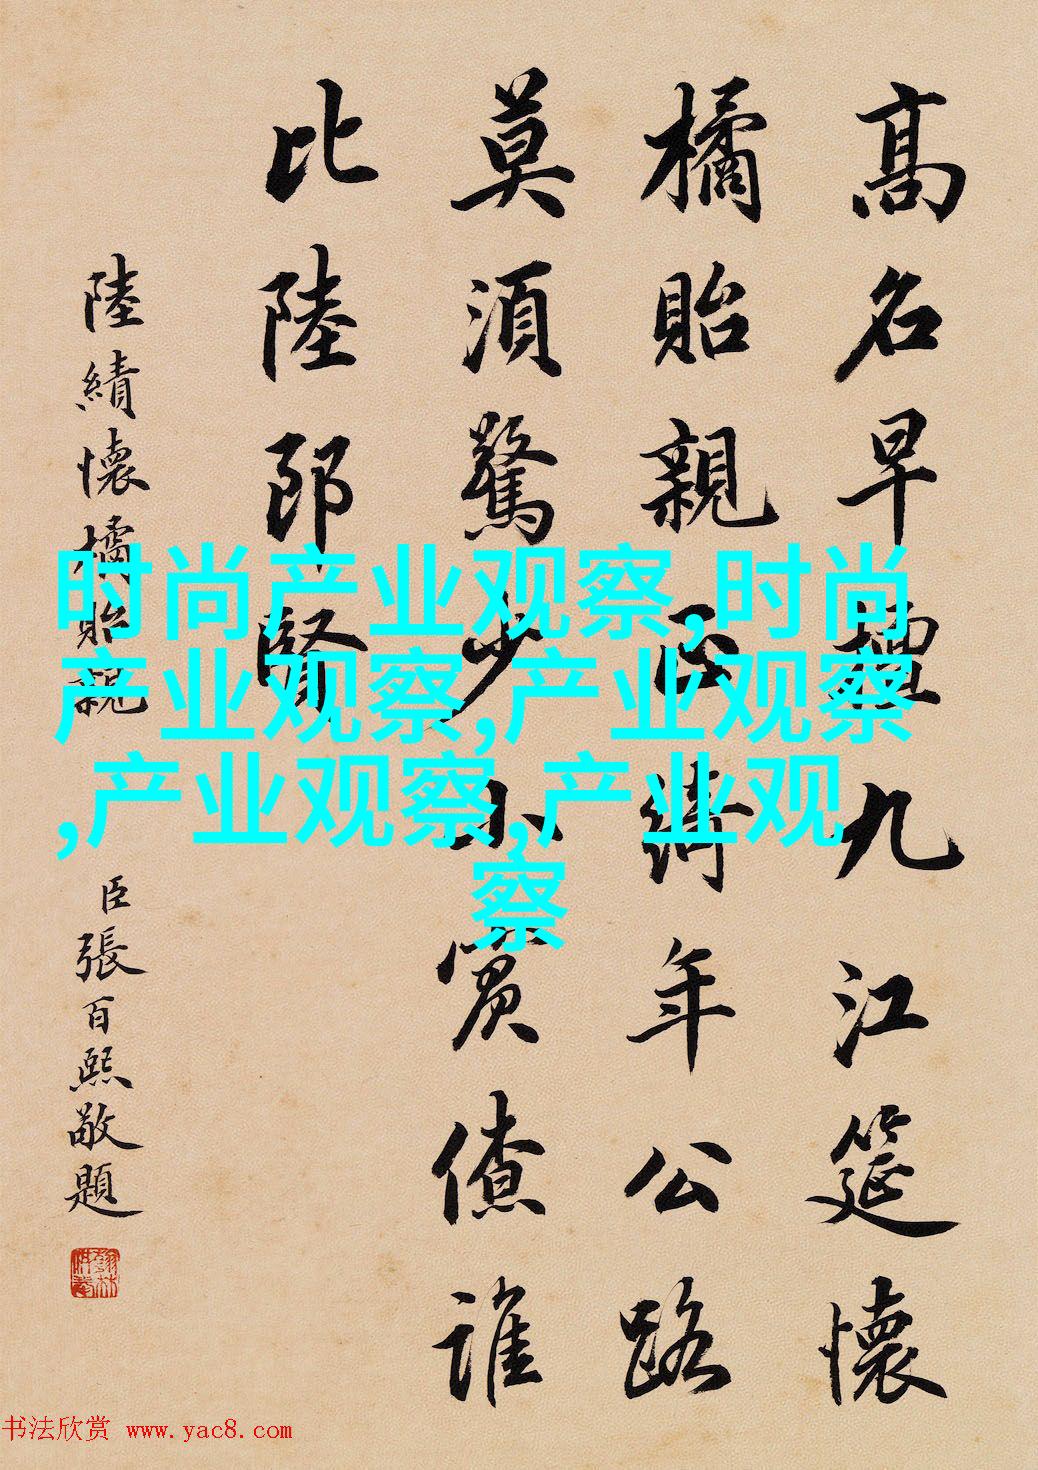 高名早擅九江筵懷
橘貽親正綺年公路
莫須驚少小賓僚誰
比陸郎賢
陸績懷橘貽親
臣張百熙敬題
时尚产业观察,时尚
产业观察,产业观察
,产业观察,产业观
察
书法欣赏 www.yac8.com